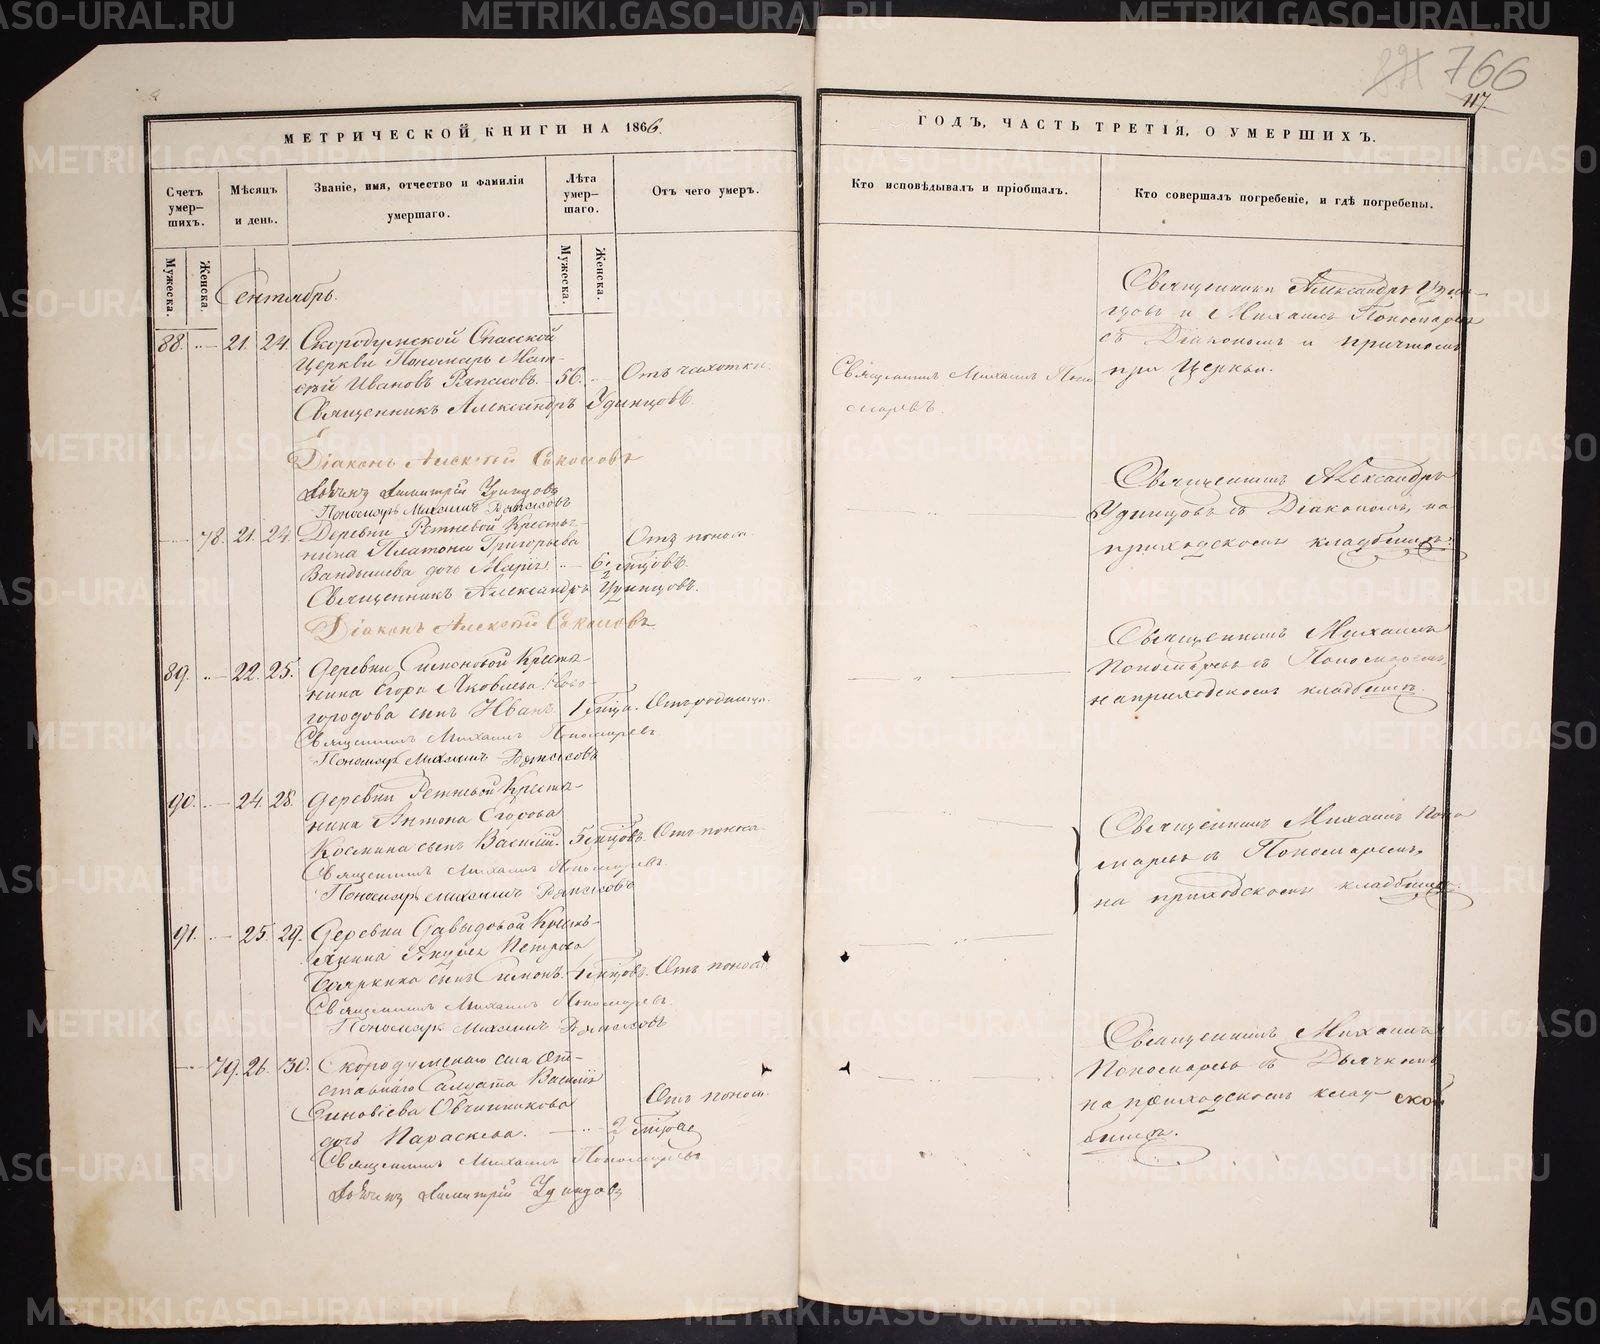 766
117.
МЕТРИЧЕСКОЙ КНИГИ НА 1866.
ГОДЪ, ЧАСТЬ ТРЕТІЯ, О УМЕРШИХЪ.
Счетъ умер-шихъ.
Мѣсяцъ и день.
Званіе, имя, отчество и фамилія умершаго.
Лѣта умер-шаго.
Отъ чего умеръ.
Кто исповѣдывалъ и пріобщалъ.
Кто совершалъ погребеніе, и гдѣ погребены.
Мужеска.
Женска.
Мужеска.
Женска.
Сентябрь.
88. 21. 24. Скородумской Спасской
Церкви Пономарь Мат-
ѳій Ивановъ 56. Отъ чахотки.
Священникъ Александръ Удинцовъ.
Священникъ Михаилъ Поно
маревъ.
Священники Александръ Удин-
цовъ и Михаилъ Пономаревъ
съ Діакономъ и причтомъ
при Церкви.
Діаконъ Алексѣй Соколовъ
Дьячекъ Димитрій Удинцовъ
Пономарь Михаилъ
78. 21. 24. Деревни Ретневой Крестья-
нина Платона Григорьева
Вандышева дочь Марія 6. мѣсяцовъ. Отъ поноса.
Священникъ Александръ Удинцовъ.
Діаконъ Алексѣй Соколовъ
Священникъ Александръ
Удинцовъ съ Діакономъ, на
приходскомъ кладбищѣ.
89. 22. 25. Деревни Симоновой Крестья-
нина Егора Яковлева Ново-
городова сынъ Иванъ 1 Отъ родимца.
Священникъ Михаилъ Пономаревъ
Пономарь Михаилъ
Священникъ Михаилъ
Пономаревъ съ Пономаремъ,
на приходскомъ кладбищѣ.
90. 24. 28. Деревни Ретневой Крестья-
нина Антона Егорова
Космина сынъ Василій. 5 Отъ поноса.
Священникъ Михаилъ Пономаревъ
Пономарь Михаилъ
Священникъ Михаилъ Поно
маревъ съ Пономаремъ,
на приходскомъ кладбищѣ.
91. 25. 29. Деревни Давыдовой Кресть-
янина Андрея Петрова
Бояркина сынъ Симонъ. Отъ поноса.
Священникъ Михаилъ Пономаревъ
Пономарь Михаилъ
79. 26. 30. Скородумскаго села От-
ставнаго Солдата Василія
Зиновіева Овчинникова
дочь Параскева. 2 Отъ поноса.
Священникъ Михаилъ Пономаревъ
Дьячекъ Димитрій Удинцовъ
Священникъ Михаилъ
Пономаревъ съ Дьячкомъ
на приходскомъ клад
бищѣ.
METRIKI.GASO-URAL.RU